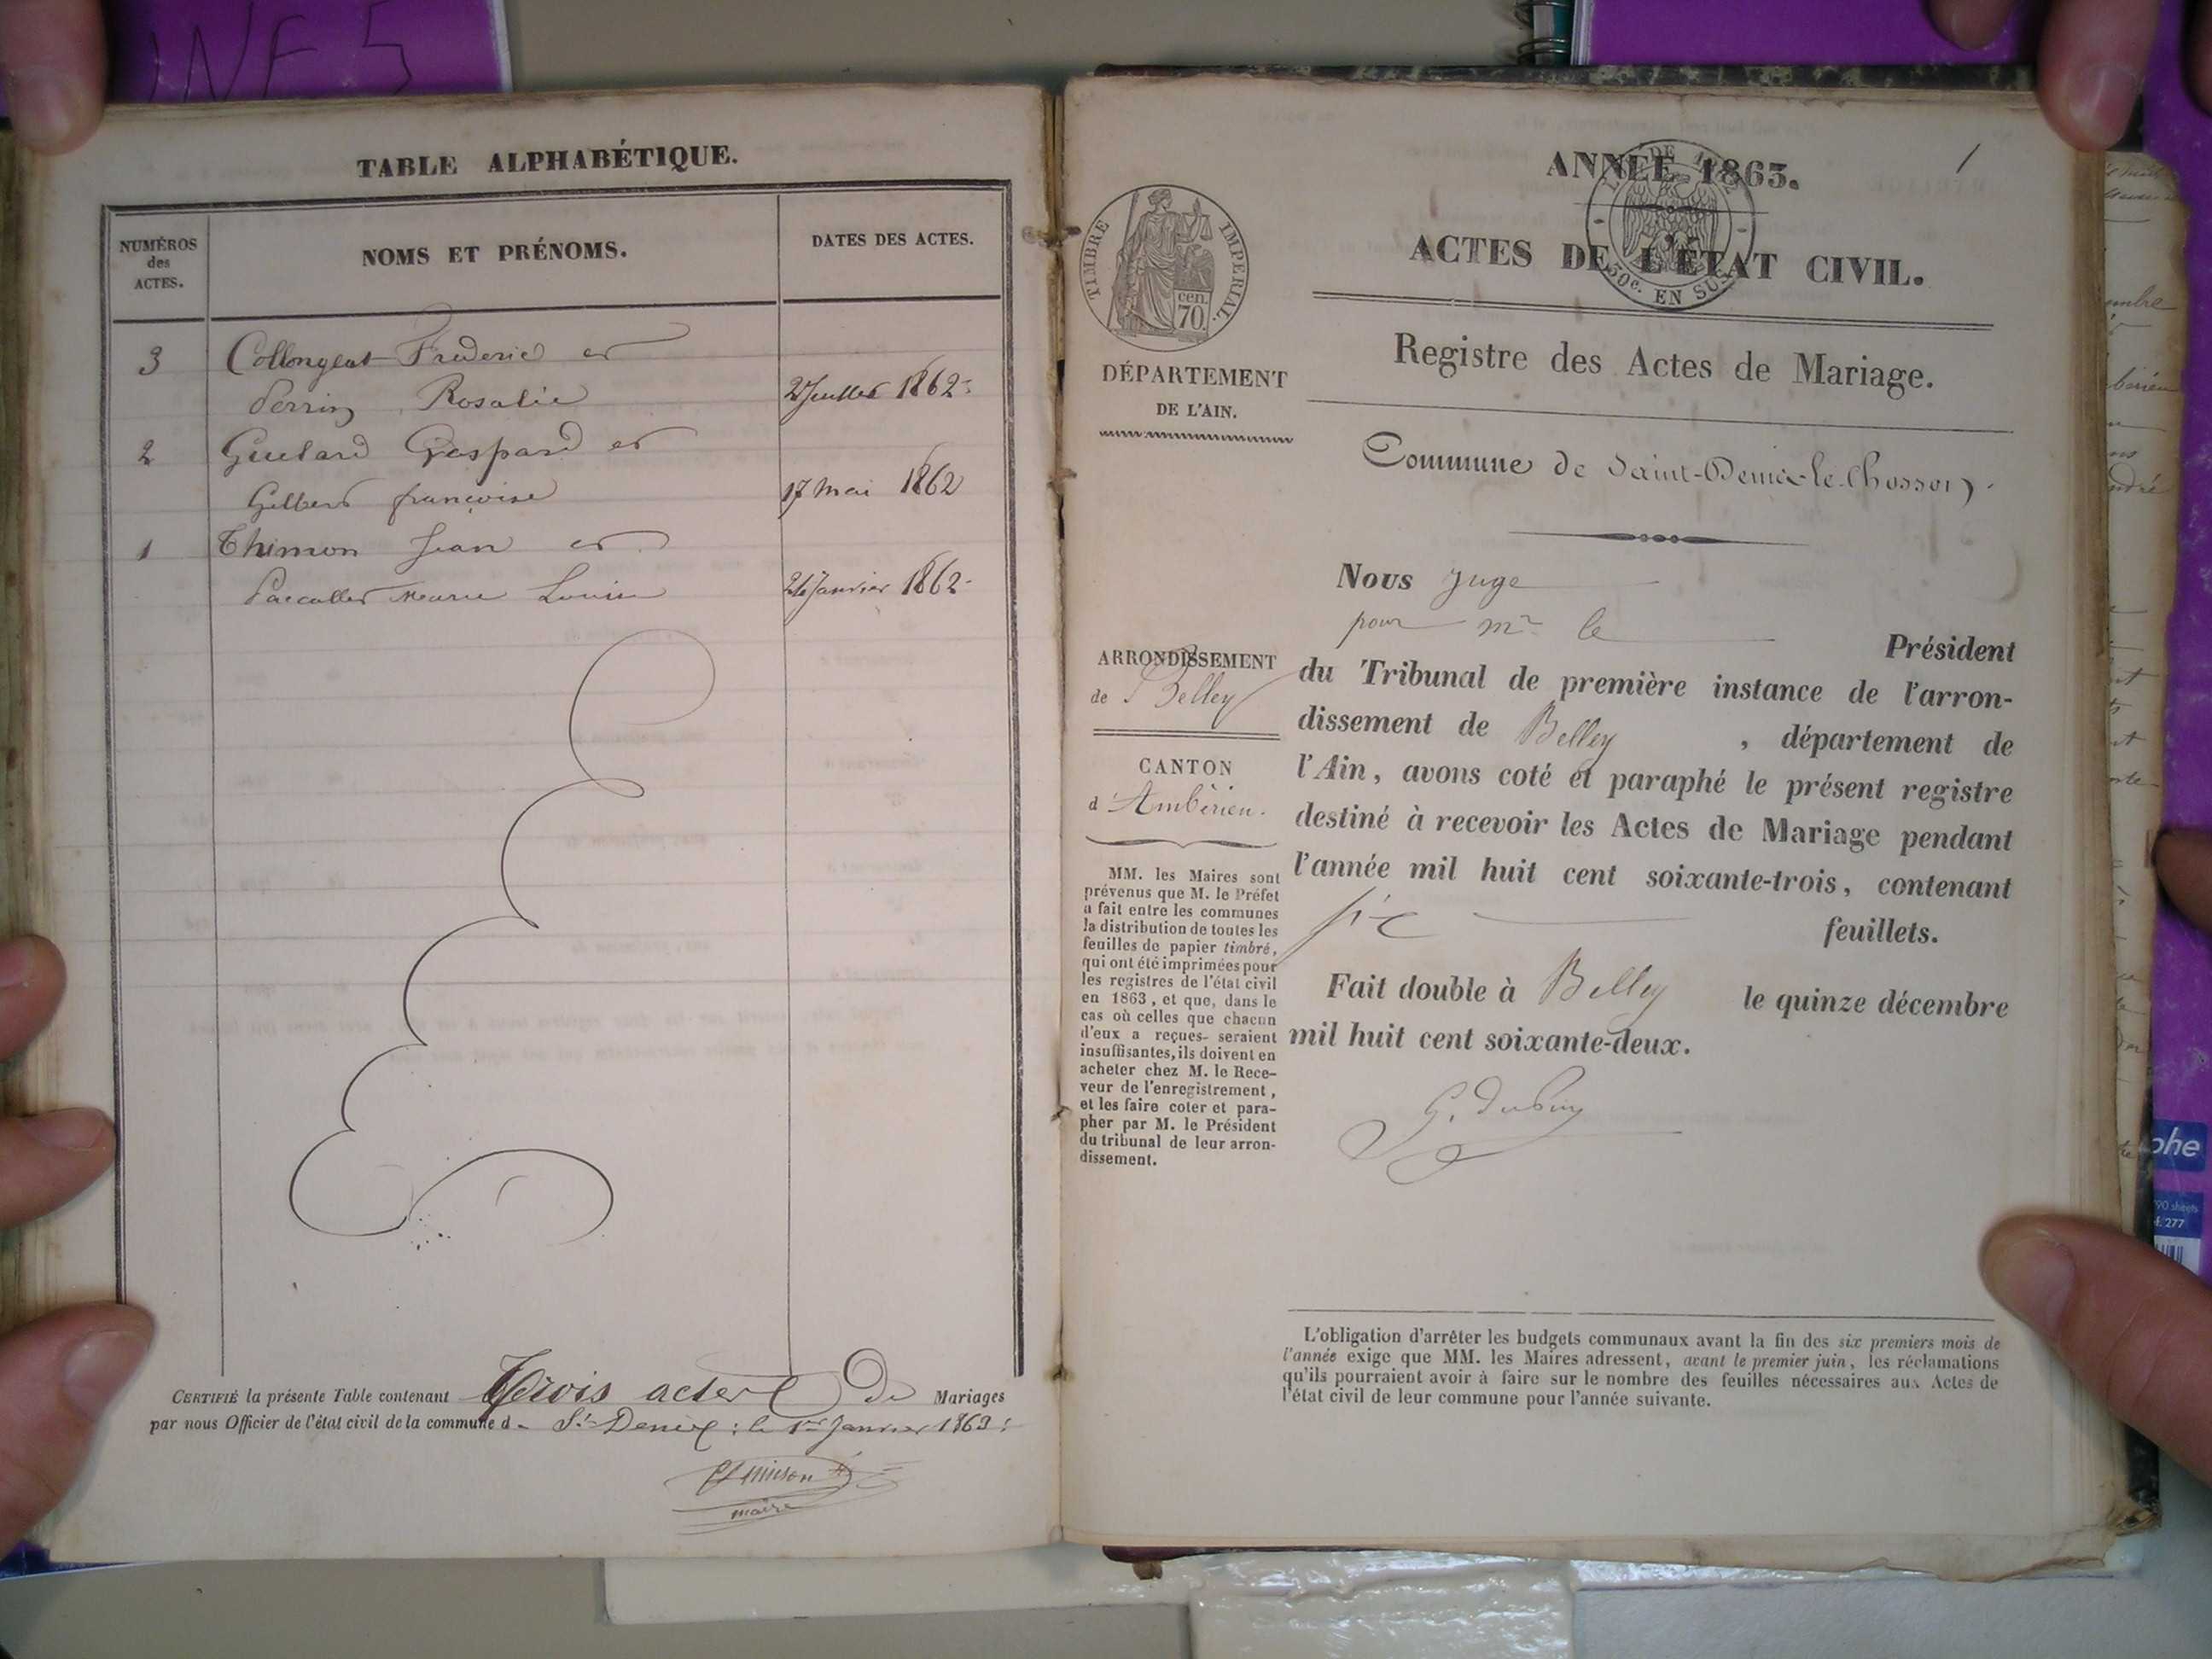 INF 5
TABLE ALPHABÉTIQUE.
NUMÉROS
des
ACTES.
NOMS ET PRÉNOMS.
DATES DES ACTES.
3 Collongeat Frederic et
Perrin Rosalie 2 Juillet 1862
2 Guelard Gaspard et
Gilbert françoise 17 Mai 1862
1 Thinnon Jean et
Marie Louise Janvier 1862
CERTIFIÉ la présente Table contenant Trois actes De Mariages
par nous Officier de l'état civil de la commune d. St. Denis : le 1er Janvier 1863 :
maire
1
ANNÉE 1863.
ACTES DE L'ÉTAT CIVIL.
30c. EN SUS
TIMBRE IMPERIAL.
cen.
70
DÉPARTEMENT
DE L'AIN.
Registre des Actes de Mariage.
Commune de Saint-Denis-le-Chosson
Nous Juge
pour Mr le
Président
ARRONDISSEMENT
de Belley
CANTON
d'Ambérieu.
MM. les Maires sont
prévenus que M. le Préfet
a fait entre les communes
la distribution de toutes les
feuilles de papier timbré,
qui ont été imprimées pour
les registres de l'état civil
en 1863, et que, dans le
cas où celles que chacun
d'eux a reçues- seraient
insuffisantes, ils doivent en
acheter chez M. le Rece-
veur de l'enregistrement,
et les faire coter et para-
pher par M. le Président
du tribunal de leur arron-
dissement.
du Tribunal de première instance de l'arron-
dissement de Belley , département de
l'Ain, avons coté et paraphé le présent registre
destiné à recevoir les Actes de Mariage pendant
l'année mil huit cent soixante-trois, contenant
six feuillets.
Fait double à Belley le quinze décembre
mil huit cent soixante-deux.
L'obligation d'arrêter les budgets communaux avant la fin des six premiers mois de
l'année exige que MM. les Maires adressent, avant le premier juin, les réclamations
qu'ils pourraient avoir à faire sur le nombre des feuilles nécessaires aux Actes de
l'état civil de leur commune pour l'année suivante.
phe
90 sheets